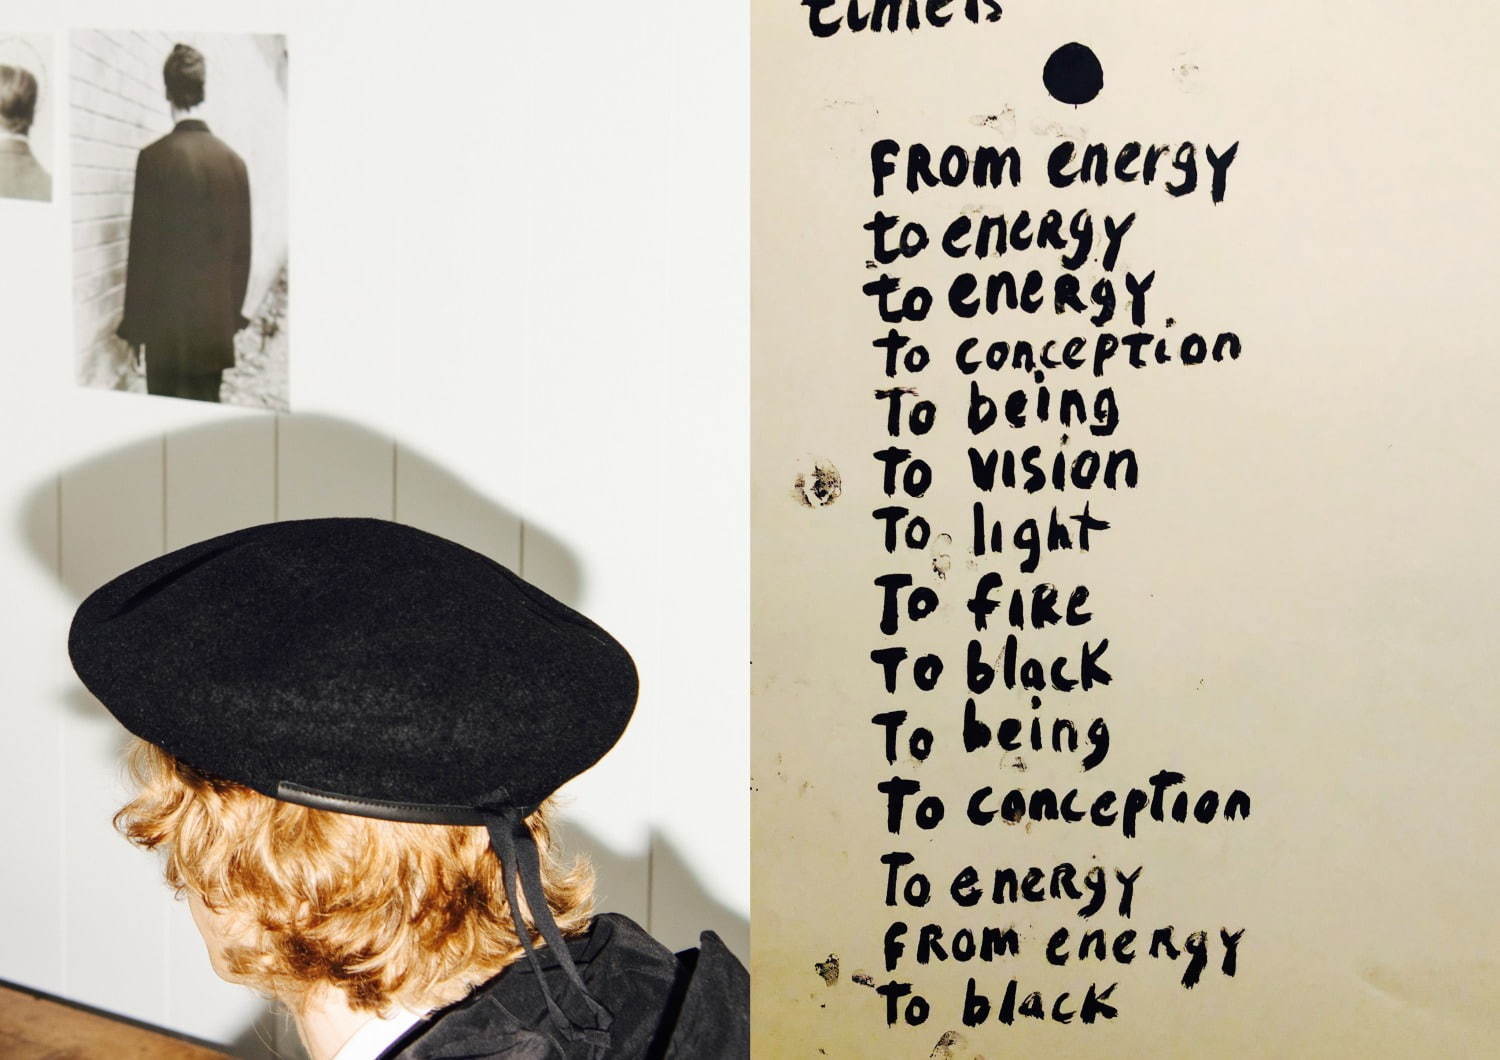 FROM energy
to eneRgy
to eneRgy
To conception
To being
To vision
To light
To fiRe
To black
To being
To conception
To eneRgy
FROM eneRgy
To black